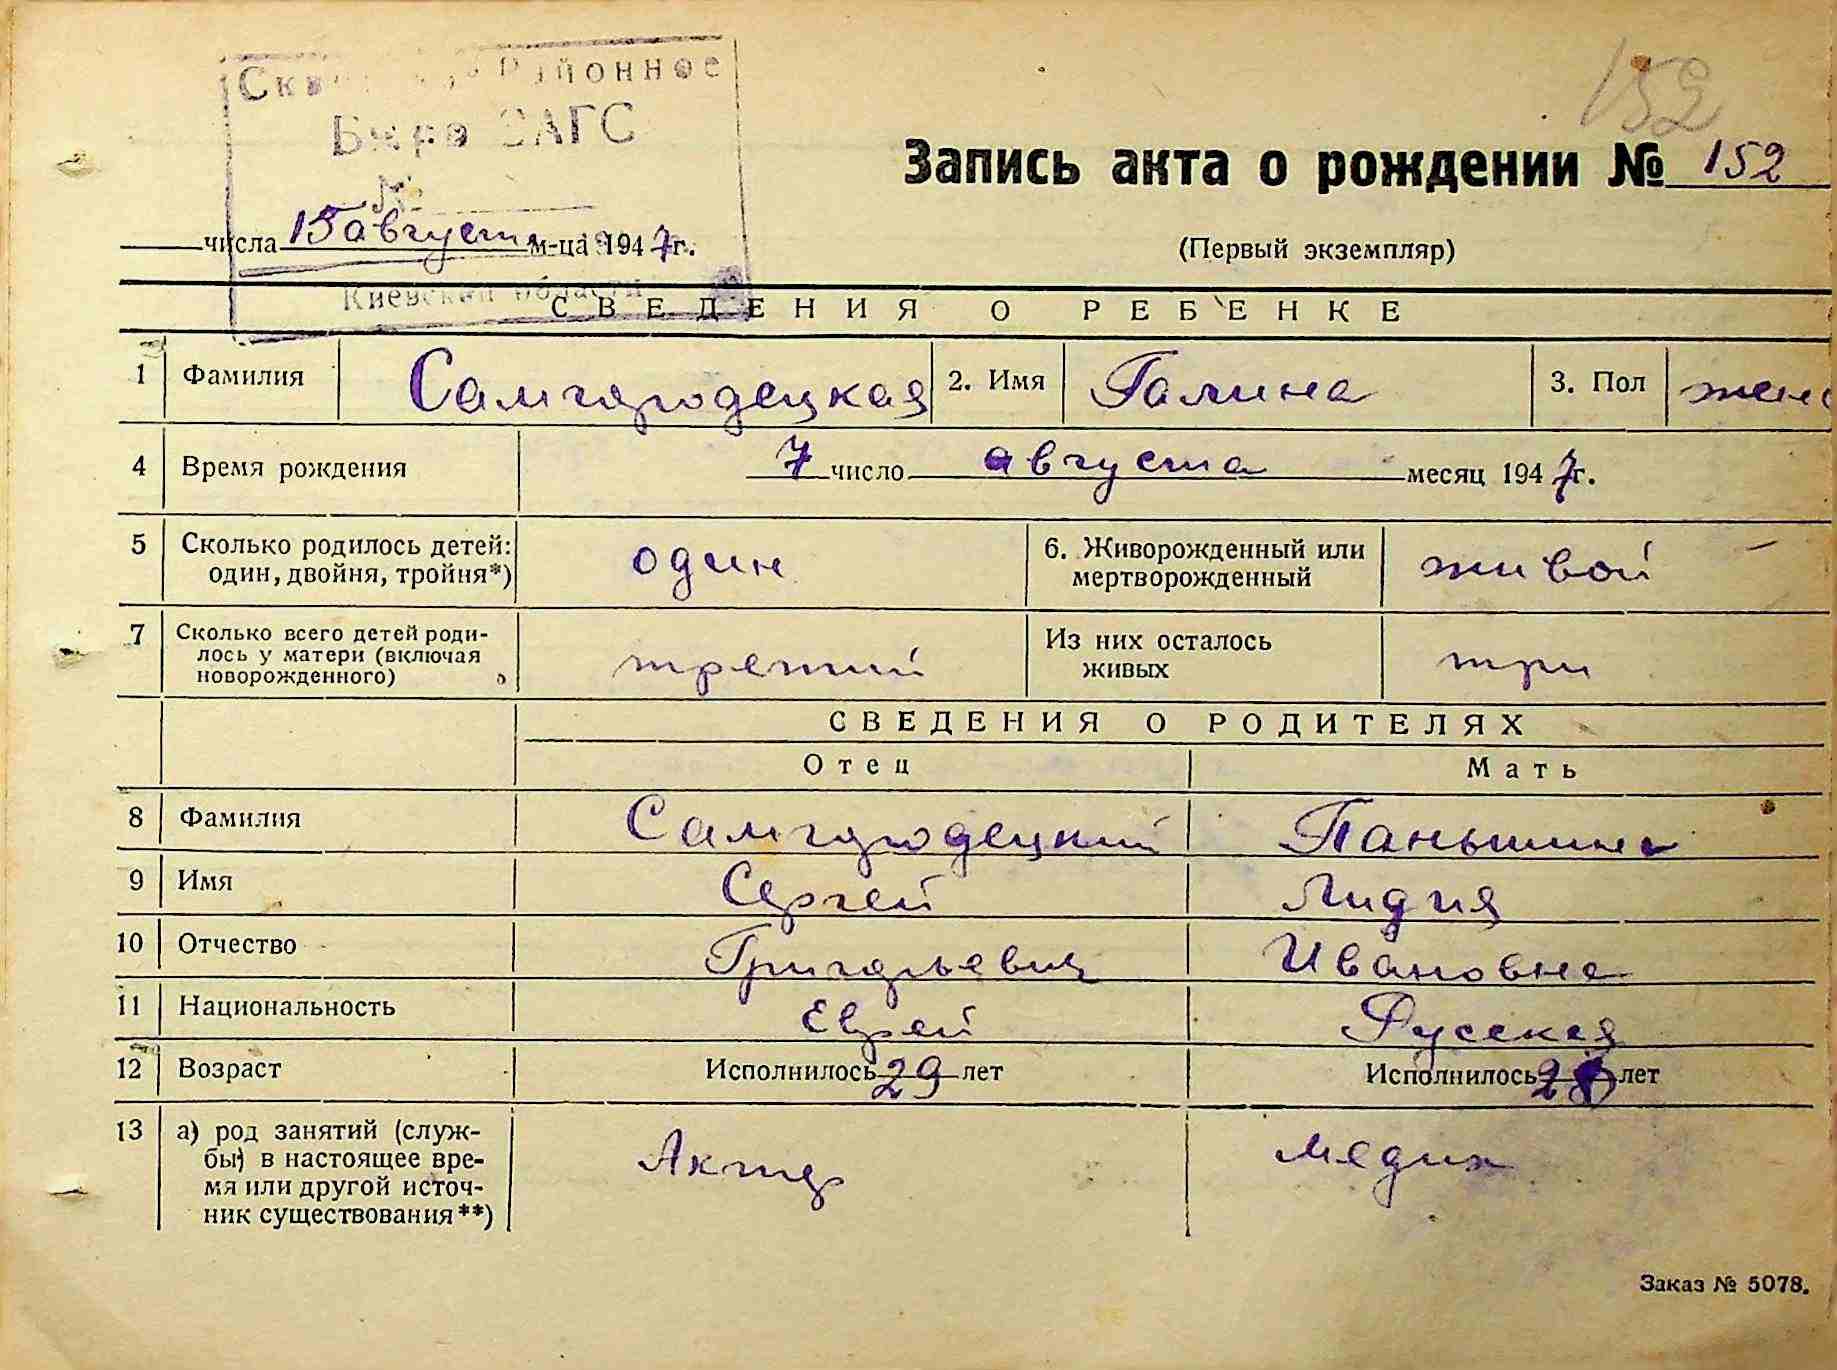 152
Районное
Бюро ЗАГС
№
Запись акта о рождении № 152
числа 15 августа м-ца 1947 г.
(Первый экземпляр)
Киевской области
СВЕДЕНИЯ О РЕБЕНКЕ
1 Фамилия Самгородецкая 2. Имя Галина 3. Пол жен
4 Время рождения 7 число августа месяц 1947 г.
5 Сколько родилось детей: один 6. Живорожденный или живой
один, двойня, тройня*) мертворожденный
7 Сколько всего детей роди- третий Из них осталось три
лось у матери (включая живых
новорожденного)
СВЕДЕНИЯ О РОДИТЕЛЯХ
Отец Мать
8 Фамилия Самгородецкий Паньшина
9 Имя Сергей Лидия
10 Отчество Григорьевич Ивановна
11 Национальность Еврей Русская
12 Возраст Исполнилось 29 лет Исполнилось 28 лет
13 а) род занятий (служ- Актер Медик
бы) в настоящее вре-
мя или другой источ-
ник существования**)
Заказ № 5078.